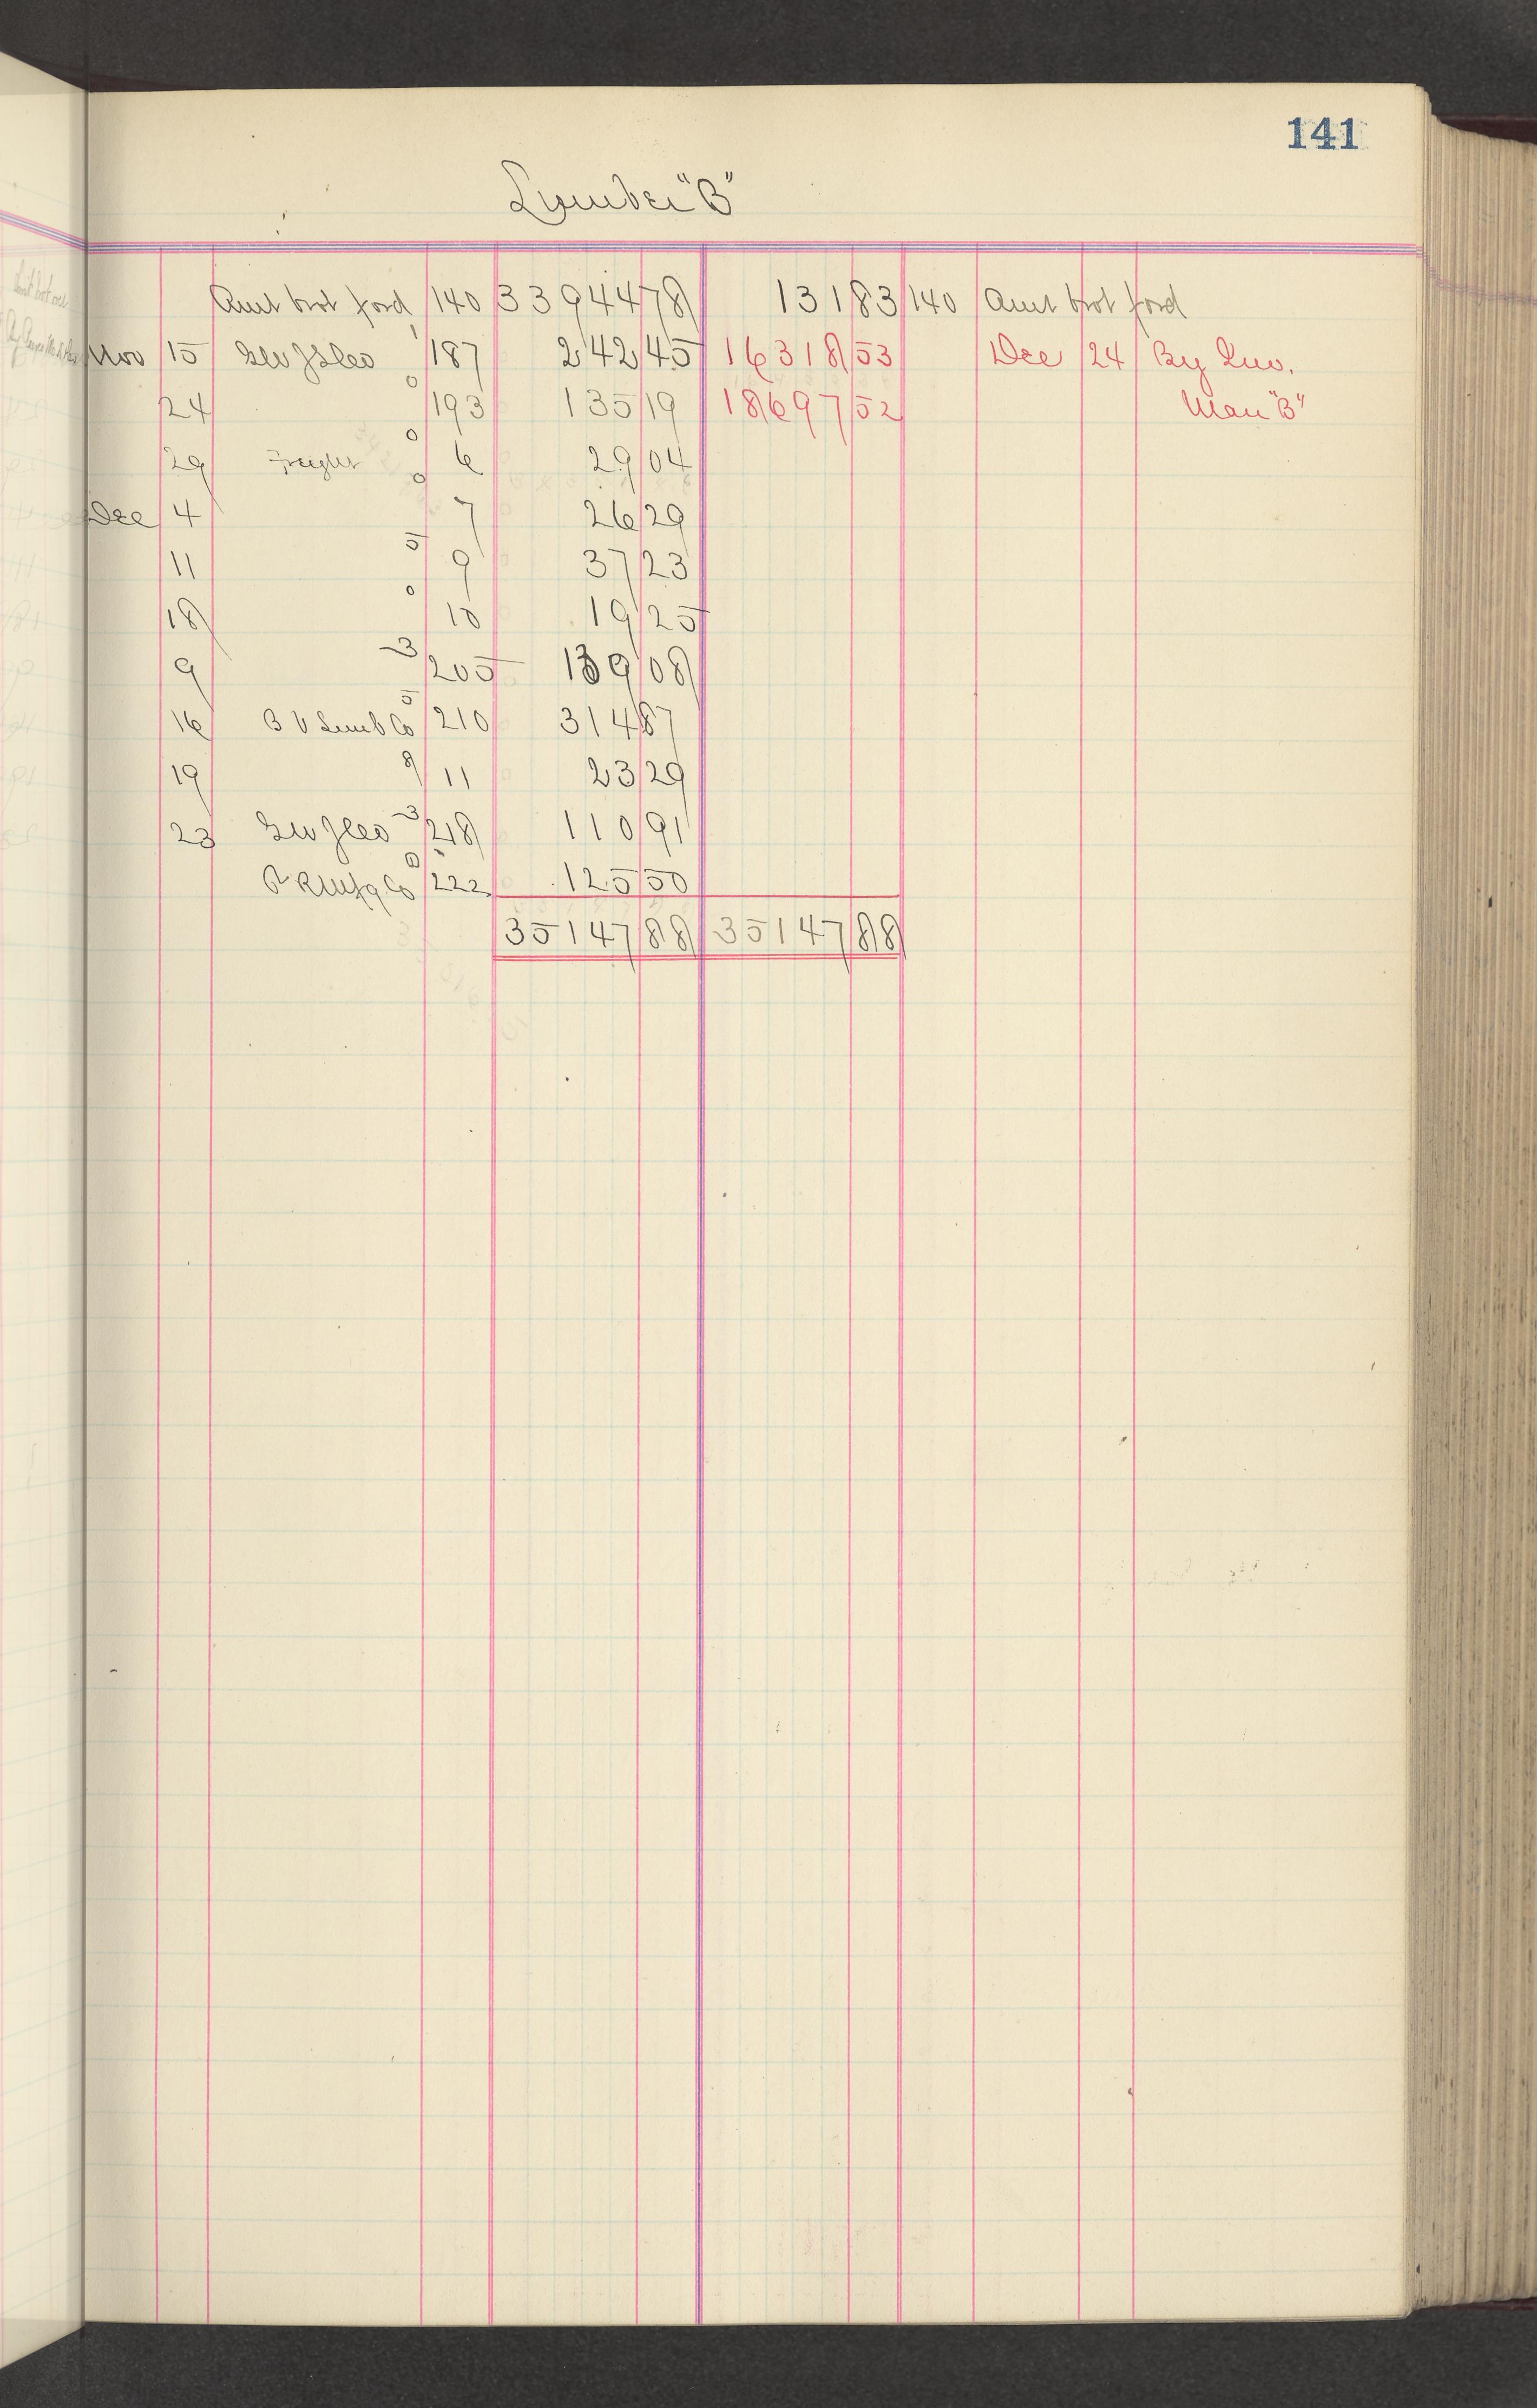 141
Lumber "B"
Amt brot ford 140 33944 78 131 83 140 Amt brot ford
Nov 15 187 242 45 16318 53 Dec 24 By Inv.
24 0 193 135 19 18697 52 Man "B"
29 Freight 0 6 29 04
Dec 4 0 7 26 29
11 5 9 37 23
18 0 10 19 25
9 3 205 139 08
16 B V Lumb Co 5 210 314 87
19 9 11 23 29
23 3 218 110 91
Co 0 222 125 50
35147 88 35147 88